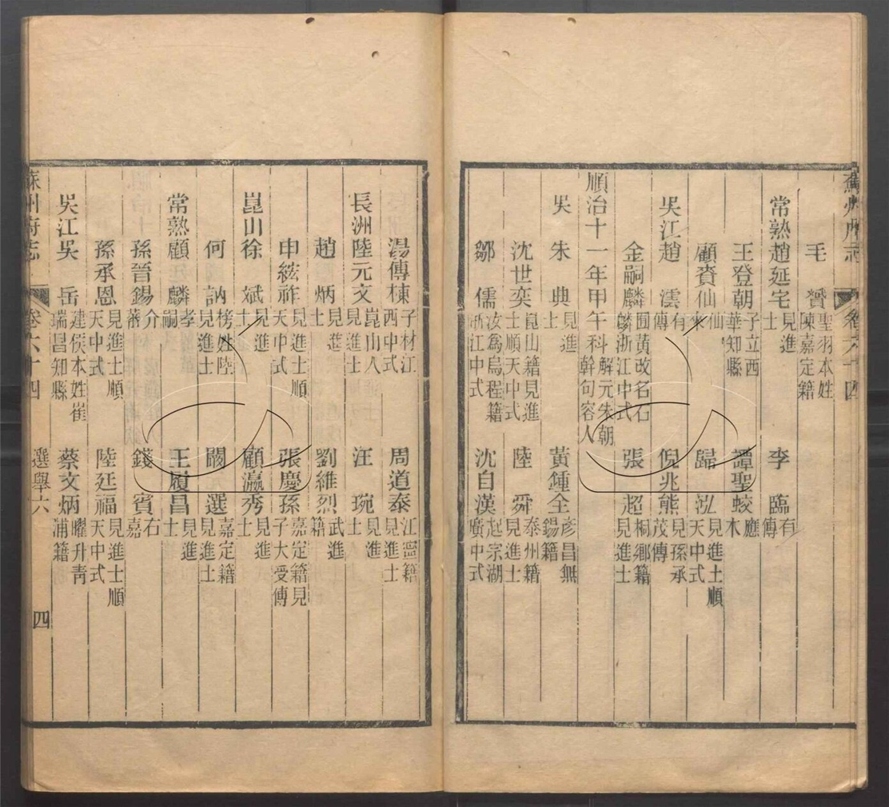 蘇州府志 卷六十四
毛贇 聖羽本姓陳嘉定籍
常熟趙延宅 見進士 李臨 有傳
王登朝 子立西華知縣 譚聖蛟 應木
顧贄仙 歸泓 見進士順天中式
吳江趙澐 有傳 倪兆熊 見孫承茂傳
金嗣麟 圃黃改名石麟浙江中式 張超 桐鄉籍見進士
順治十一年甲午科 解元朱朝幹句容人
吳朱典 見進士 黃鍾全 彥昌無錫籍
沈世奕 崑山籍見進士順天中式 陸舜 泰州籍見進士
鄒儒 汝爲烏程籍浙江中式 沈自漢 起宗湖廣中式
湯傳楝 子材江西中式 周道泰 江寧籍見進士
長洲陸元文 崑山人見進士 汪琬 見進士
趙炳 見進士 劉維烈 武進籍
申紘祚 見進士順天中式 張慶孫 嘉定籍見子大受傳
崑山徐斌 見進士 顧瀛秀 見進士
何訥 榜姓陸見進士 閻選 嘉定籍見進士
常熟顧麟 孝嗣 王履昌 見進士
孫晉錫 介蕃 錢賓 右嘉
孫承恩 見進士順天中式 陸廷福 見進士順天中式
吳江吳岳 建侯本姓崔瑞昌知縣 蔡文炳 曜升青浦籍
蘇州府志 卷六十四 選舉六 四